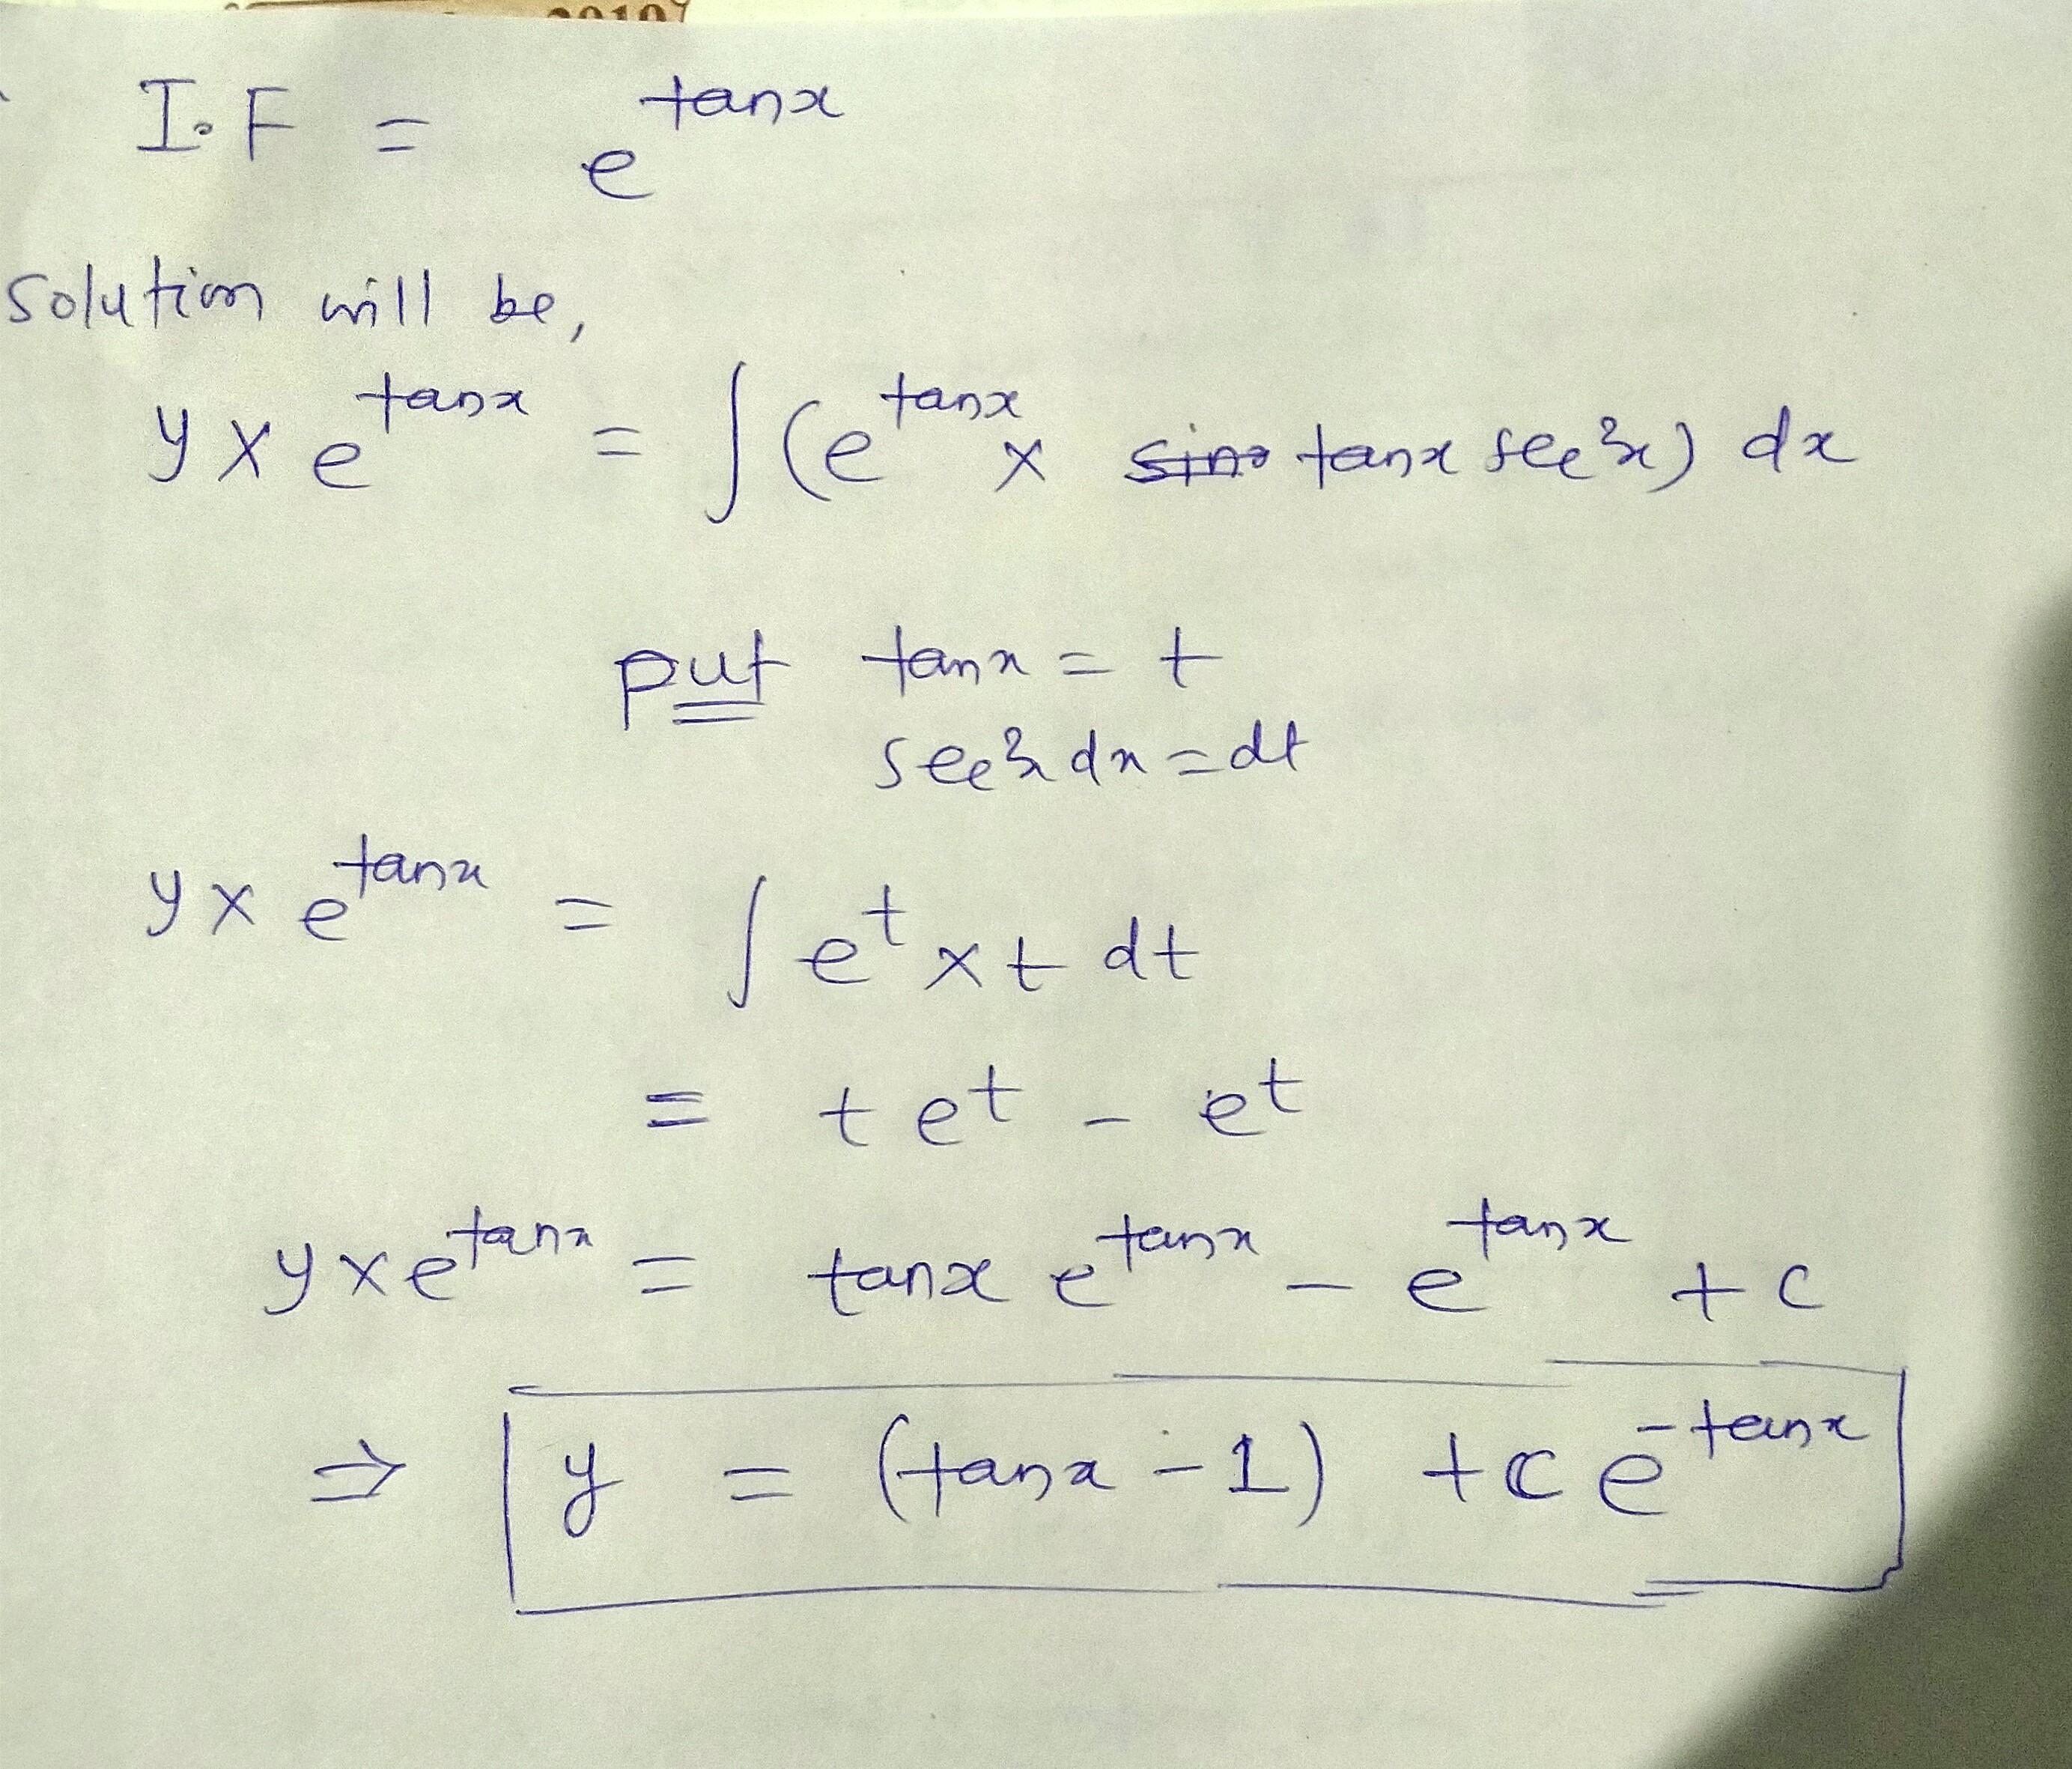 2019
I.F = e^tanx
solution will be,
y × e^tanx = ∫(e^tanx × tanx sec²x) dx
put tanx = t
sec²x dx = dt
y × e^tanx = ∫ e^t × t dt
= t e^t - e^t
y × e^tanx = tanx e^tanx - e^tanx + c
⇒ y = (tanx - 1) + c e^-tanx